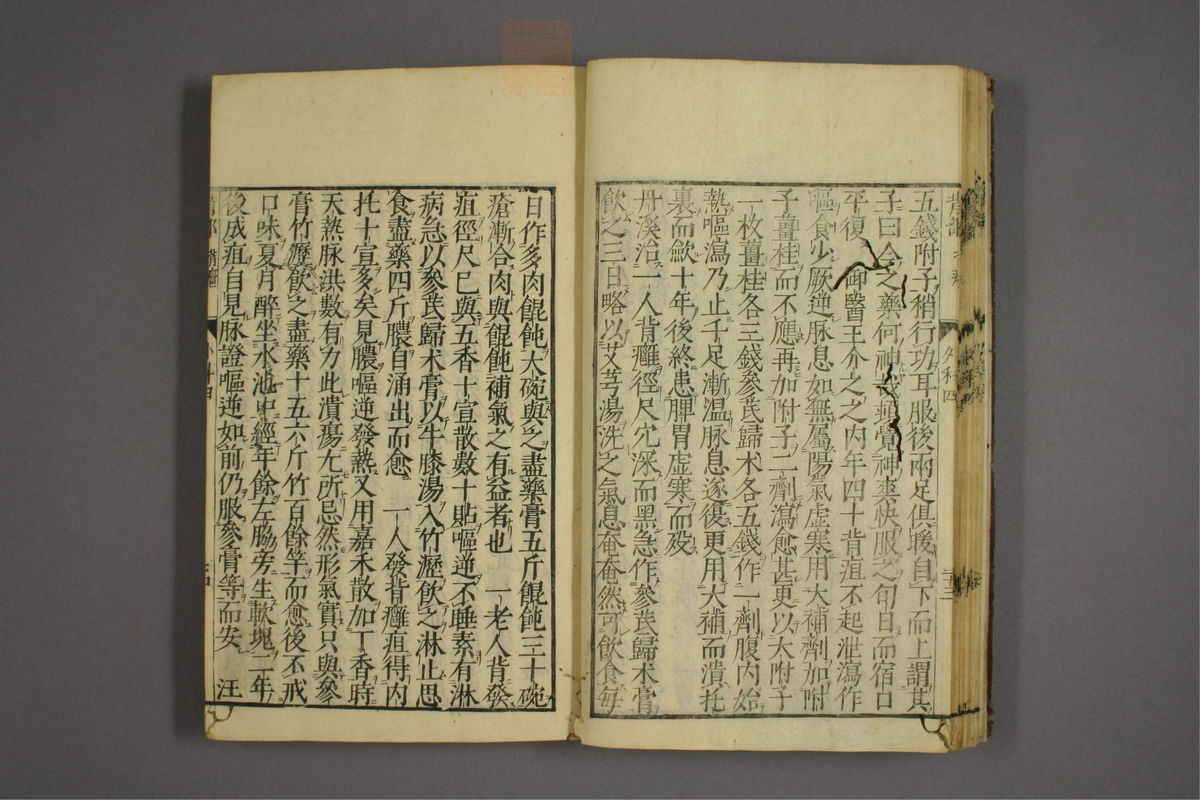 五錢附子稍行功耳服後兩足俱暖自下而上謂其
子曰今之藥何神也頓覺神爽快服之旬日而宿口
平復 御醫王介之之內年四十背疽不起泄瀉作
嘔食少厥逆脉息如無屬陽氣虛寒用大補劑加附
子薑桂而不應再加附子二劑瀉愈甚更以大附子
一枚薑桂各三錢參芪歸术各五錢作一劑腹內始
熱嘔瀉乃止手足漸温脉息遂復更用大補而潰托
裏而歛十年後終患脾胃虛寒而殁
丹溪治一人背癰徑尺穴深而黑急作參芪歸术膏
飲之三日略以艾芎湯洗之氣息奄奄然可飲食每
日作多肉餛飩大碗與之盡藥膏五斤餛飩三十碗
瘡漸合肉與餛飩補氣之有益者也 一老人背發
疽徑尺已與五香十宣散數十貼嘔逆不睡素有淋
病急以參芪歸术膏以牛膝湯入竹瀝飲之淋止思
食盡藥四斤膿自涌出而愈 一人發背癰疽得内
托十宣多矣見膿嘔逆發熱又用嘉禾散加丁香時
天熱脉洪數有力此潰瘍尢所忌然形氣實只與參
膏竹瀝飲之盡藥十五六斤竹百餘竿而愈後不戒
口味夏月醉坐水池中經年餘左脇旁生軟塊二年
後成疽自見脉證嘔逆如前仍服參膏等而安 汪
外科四